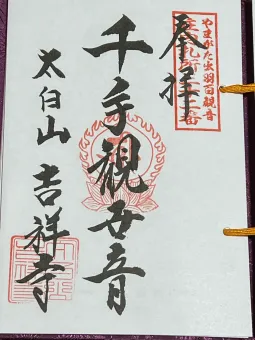 やまがた出羽百観音
奉拝
千手観世音
太白山 吉祥寺